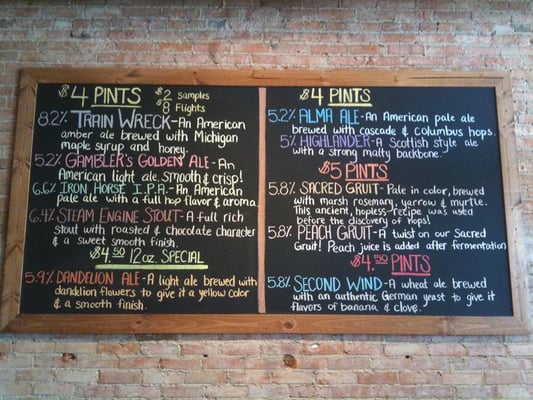 $4 PINTS
$2 Samples
$8 Flights
8.2% TRAIN WRECK-An American
amber ale brewed with Michigan
maple syrup and honey.
5.2% GAMBLER'S GOLDEN ALE-An
American light ale. smooth & crisp!
6.6% IRON HORSE I.P.A.-An American
pale ale with a full hop flavor & aroma.
6.4% STEAM ENGINE STOUT-A full rich
stout with roasted & chocolate character
& a sweet smooth finish.
$4.50 12oz. SPECIAL
5.9% DANDELION ALE-A light ale brewed with
dandelion flowers to give it a yellow color
& a smooth finish.
$4 PINTS
5.2% ALMA ALE-An American pale ale
brewed with cascade & columbus hops.
5% HIGHLANDER-A Scottish style ale
with a strong malty backbone.
$5 PINTS
5.8% SACRED GRUIT-Pale in color, brewed
with marsh rosemary, yarrow & myrtle.
This ancient, hopless-recipe was used
before the discovery of hops!
5.8% PEACH GRUIT-A twist on our Sacred
Gruit! Peach juice is added after fermentation
$4.50 PINTS
5.8% SECOND WIND-A wheat ale brewed
with an authentic German yeast to give it
flavors of banana & clove.